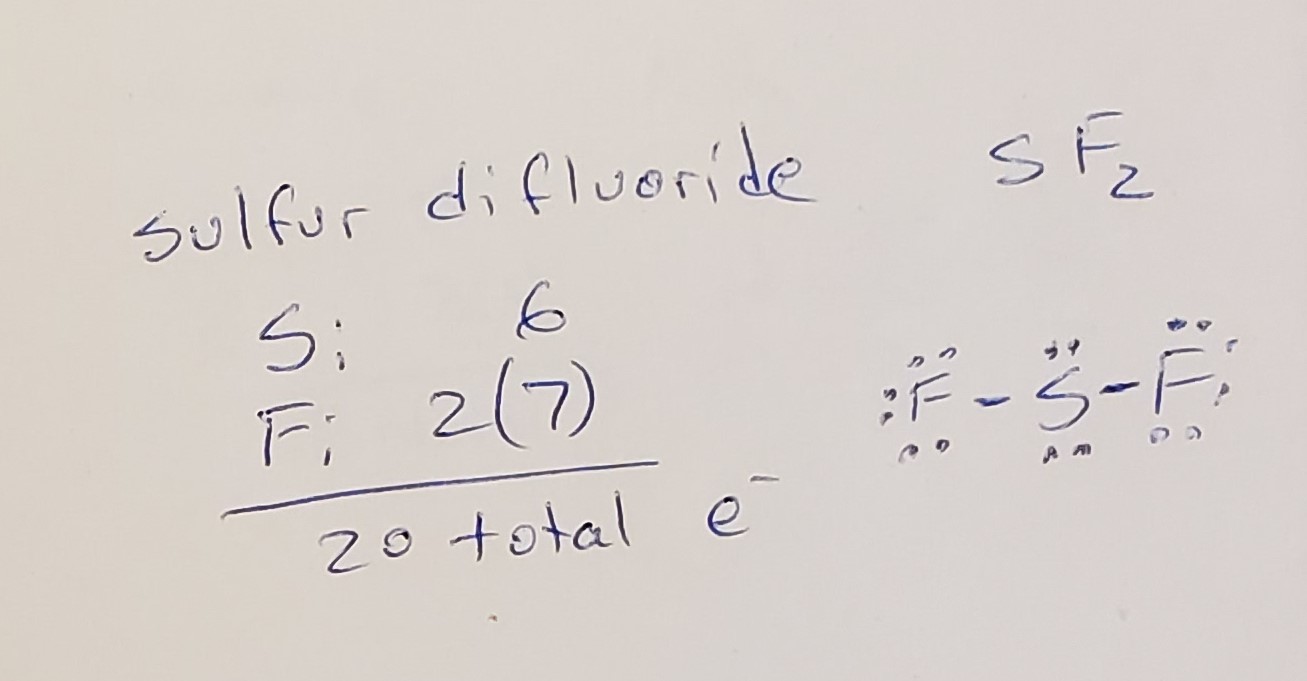 sulfur difluoride SF₂
S: 6
F: 2(7)
20 total e⁻
:F̤̈ - S̤̈ - F̤̈: